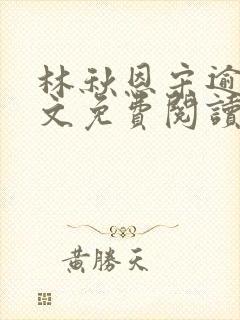 林秋恩宋逾
文免費閱讀
黃勝天